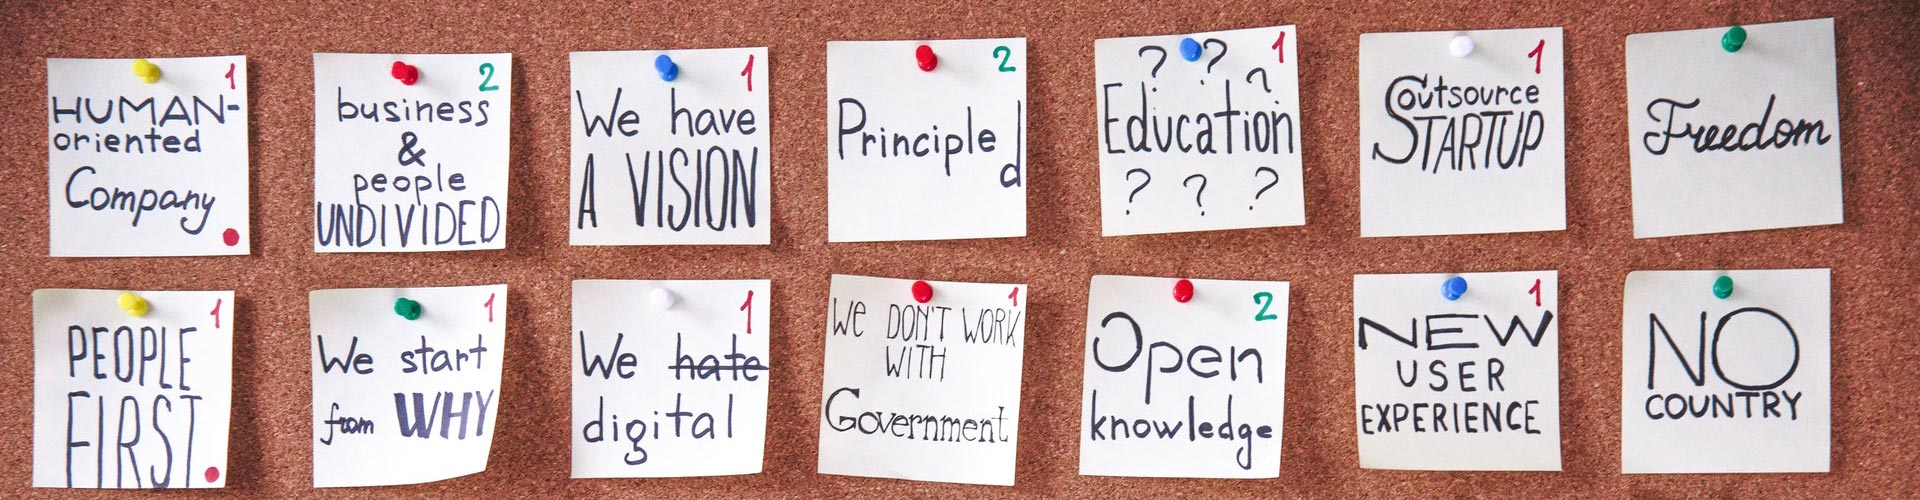 1
HUMAN-
oriented
Company
2
business
&
people
UNDIVIDED
1
We have
A VISION
2
Principled
1
? ? ?
Education
? ? ?
1
Outsource
STARTUP
Freedom
1
PEOPLE
FIRST
1
We start
from WHY
1
We hate
digital
1
We DON'T WORK
WITH
Government
2
Open
knowledge
1
NEW
USER
EXPERIENCE
NO
COUNTRY